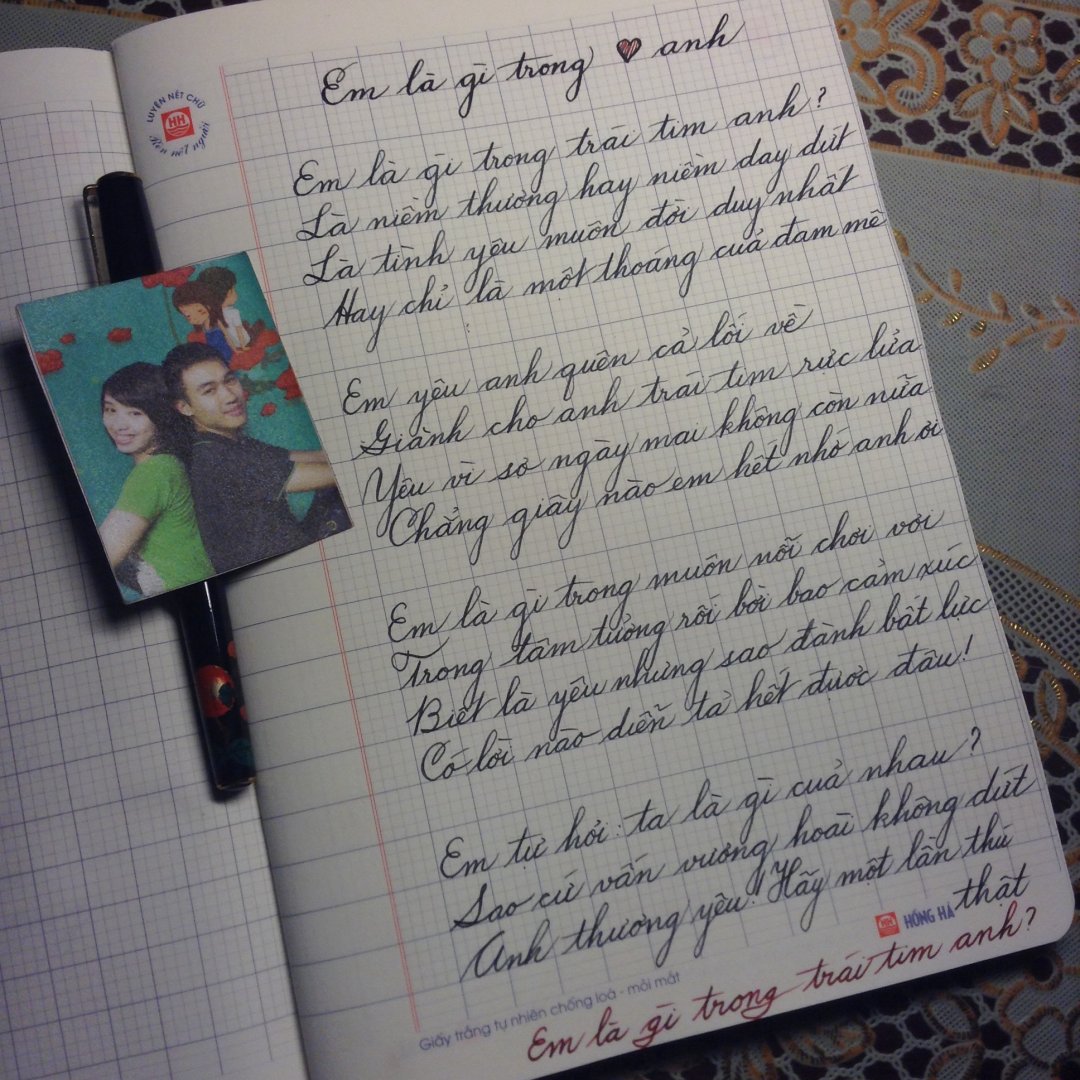 Em là gì trong ♥ anh
LUYỆN NÉT CHỮ
HH
Rèn nết người
Em là gì trong trái tim anh?
Là niềm thương hay niềm day dứt
Là tình yêu muôn đời duy nhất
Hay chỉ là một thoáng của đam mê
Em yêu anh quên cả lối về
Giành cho anh trái tim rực lửa
Yêu vì sợ ngày mai không còn nữa
Chẳng giây nào em hết nhớ anh ơi
Em là gì trong muôn nỗi chơi vơi
Trong tâm tưởng rối bời bao cảm xúc
Biết là yêu nhưng sao đành bất lực
Có lời nào diễn tả hết được đâu!
Em tự hỏi: ta là gì của nhau?
Sao cứ vấn vương hoài không dứt
Anh thương yêu! Hãy một lần thú
thật
HH HỒNG HÀ
Em là gì trong trái tim anh?
Giấy trắng tự nhiên chống loá - mỏi mắt